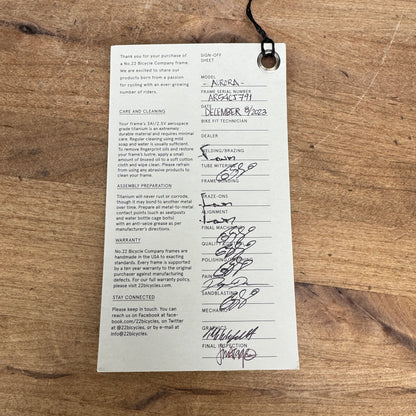 Thank you for your purchase of
a No.22 Bicycle Company frame.
We are excited to share our
products born from a passion
for cycling with an ever-growing
number of riders.
CARE AND CLEANING
Your frame's 3Al/2.5V aerospace
grade titanium is an extremely
durable material and requires minimal
care. Regular cleaning using mild
soap and water is usually sufficient.
To remove fingerprint oils and restore
your frame's lustre, apply a small
amount of linseed oil to a soft cotton
cloth and wipe clean. Please refrain
from using any abrasive products to
clean your frame.
ASSEMBLY PREPARATION
Titanium will never rust or corrode,
though it may bond to another metal
over time. Prepare all metal-to-metal
contact points (such as seatposts
and water bottle cage bolts)
with an anti-seize grease as per
manufacturer's directions.
WARRANTY
No.22 Bicycle Company frames are
handmade in the USA to exacting
standards. Every frame is supported
by a ten year warranty to the original
purchaser against manufacturing
defects. For our full warranty policy,
please visit 22bicycles.com.
STAY CONNECTED
Please keep in touch. You can
reach us on Facebook at face-
book.com/22bicycles, on Twitter
at @22bicycles, or by e-mail at
info@22bicycles.com.
SIGN-OFF
SHEET
MODEL
- AURORA -
FRAME SERIAL NUMBER
DATE
DECEMBER 8/2023
BIKE FIT TECHNICIAN
DEALER
WELDING/BRAZING
TUBE MITERING
FRAME BENDING
BRAZE-ONS
ALIGNMENT
FINAL MACHINING
QUALITY
POLISHING
PAINT
SANDBLASTING
MECHANIC
GRAPHICS
FINAL INSPECTION